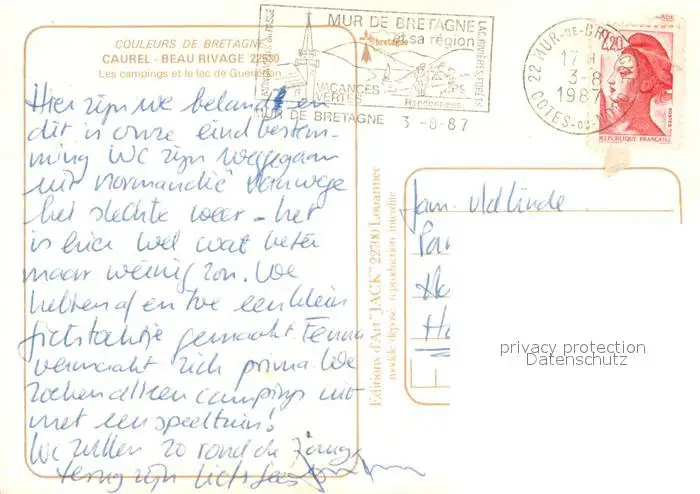 COULEURS DE BRETAGNE
CAUREL - BEAU RIVAGE 22530
Les campings et le lac de Guerlédan
MUR DE BRETAGNE
et sa région
bretagne
LAC RIVIÈRES FORÊTS
VACANCES
VERTES
Randonnées
MUR DE BRETAGNE 3-8-87
22 MUR-DE-BRETAGNE
17 H
3-8
1987
COTES-DU-NORD
2,20
REPUBLIQUE FRANÇAISE
Hier zijn we beland en
dit is onze eindbestem-
ming We zijn weggegaan
uit normandië vanwege
het slechte weer - het
is hier wel wat beter
maar weinig zon. We
hebben af en toe een klein
fietstochtje gemaakt
vermaakt zich prima. We
zoeken alleen campings uit
met een speeltuin!
We zullen zo rond de
terug zijn liefs
Editions d'Art "JACK" 22700 Louannec
modèle déposé - reproduction interdite
Fam. vld Linde
privacy protection
Datenschutz